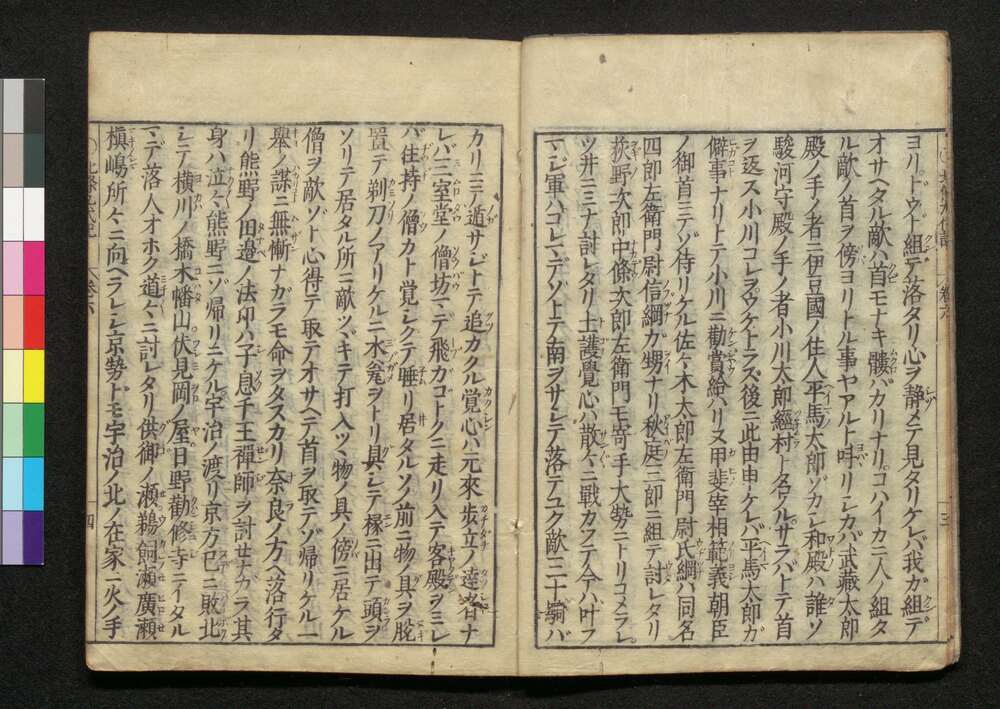 ヨリドウト組テ落タリ心ヲ静メテ見タリケレバ我ガ組デ
オサヘタル敵ハ首モナキ髏バカリナリコハイカニ人ノ組タ
ル敵ノ首ヲ傍ヨリトル事ヤアルト呼リシカバ武蔵太郎
殿ノ手ノ者ニ伊豆國ノ住人平馬太郎ゾカシ和殿ハ誰ソ
駿河守殿ノ手ノ者小川太郎經村ト名ノルサラバトテ首
ヲ返ス小川コレヲウケトラズ後ニ此由申ケレバ平馬太郎ガ
僻事ナリトテ小川ニ勸賞給ハリヌ甲斐宰相範義朝臣
ノ御首ニテゾ侍リケル佐々木太郎左衛門尉氏綱ハ同名
四郎左衛門尉信綱ガ甥ナリ秋庭三郎ニ組テ討レタリ
荻野次郎中條次郎左衛門モ寄手大勢ニトリコメラレ
ツ井ニミナ討レタリ土護覺心ハ散々ニ戰カフテ今ハ叶フ
マジ軍ハコレマデゾトテ南ヲサシテ落テユク敵三十騎バ
カリニテ遁サジトテ追カクル覚心ハ元來歩立ノ達者ナ
レバ三室堂ノ僧坊マデ飛カゴトクニ走リ入テ客殿ヲミレ
バ住持ノ僧カト覚シクテ睡リ居タルソノ前ニ物ノ具ヲ脱
置テ剃刀ノアリケルニ水瓮ヲトリ具シテ椽ニ出テ頭ヲ
ソリテ居タル所ニ敵ツヾキテ打入ツヽ物ノ具ノ傍ニ居ケル
僧ヲ敵ゾト心得テ取テオサヘテ首ヲ取テゾ帰リケル一
舉ノ謀ニ無慚ナガラモ命ヲタスカリ奈良ノ方ヘ落行タ
リ熊野ノ田邉ノ法印ハ子息千王禪師ヲ討セナカラ其
身ハ泣々熊野ニゾ帰リニケル宇治ノ渡リ京方已ニ敗北
シテ横川ノ橋木幡山伏見岡ノ屋日野勸修寺ニイタル
マデ落人オホク道々ニ討レタリ供御ノ瀬鵜飼瀬廣瀬
槇嶋所々ニ向ヘラレシ京勢トモ宇治ノ北ノ在家ニ火ノ手